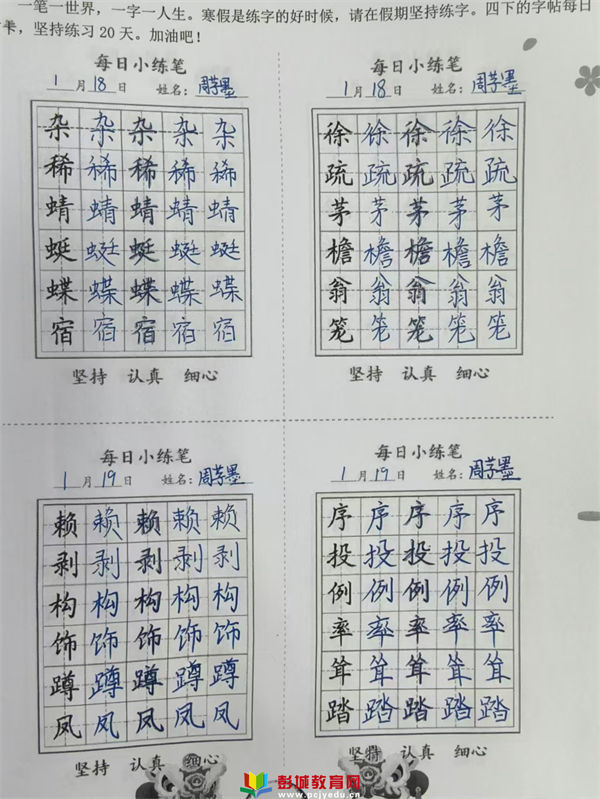 一笔一世界，一字一人生。寒假是练字的好时候，请在假期坚持练字。四下的字帖每日
卡，坚持练习20天。加油吧！
每日小练笔
1月18日 姓名：周芓墨
杂杂杂杂杂
稀稀稀稀稀
蜻蜻蜻蜻蜻
蜓蜓蜓蜓蜓
蝶蝶蝶蝶蝶
宿宿宿宿宿
坚持 认真 细心
每日小练笔
1月18日 姓名：周芓墨
徐徐徐徐徐
疏疏疏疏疏
茅茅茅茅茅
檐檐檐檐檐
翁翁翁翁翁
笼笼笼笼笼
坚持 认真 细心
每日小练笔
1月19日 姓名：周芓墨
赖赖赖赖赖
剥剥剥剥剥
构构构构构
饰饰饰饰饰
蹲蹲蹲蹲蹲
凤凤凤凤凤
坚持 认真 细心
每日小练笔
1月19日 姓名：周芓墨
序序序序序
投投投投投
例例例例例
率率率率率
耸耸耸耸耸
踏踏踏踏踏
坚持 认真 细心
彭城教育网
www.pcjyedu.cn